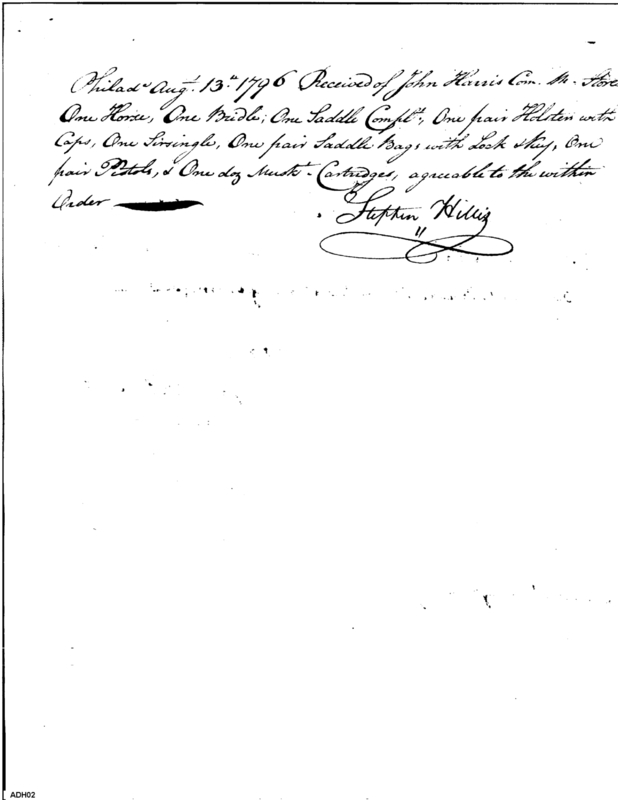 Philad.ᵃ Aug.ᵗ 13.ᵗʰ 1796 Received of John Harris Com. M. Store
One Horse, One Bridle, One Saddle Compl.ᵗ, One pair Holsters with
Caps, One Sirsingle, One pair Saddle Bags with Lock & key, One
pair Pistols, & One doz Musk.ᵗ Cartridges, agreeable to the within
Order
Stephen Hillis
ADH02